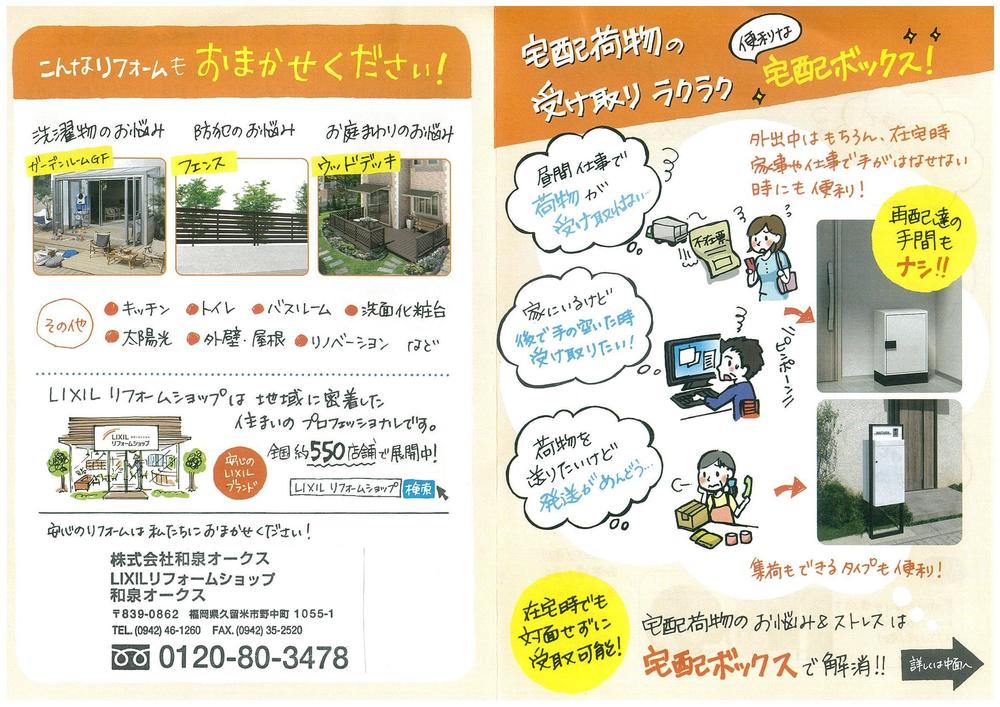 こんなリフォームも おまかせください!
洗濯物のお悩み
ガーデンルームGF
防犯のお悩み
フェンス
お庭まわりのお悩み
ウッドデッキ
その他
●キッチン ●トイレ ●バスルーム ●洗面化粧台
●太陽光 ●外壁・屋根 ●リノベーション など
LIXIL リフォームショップは 地域に密着した
住まいの プロフェッショナルです。
LIXIL
リフォームショップ
安心の
LIXIL
ブランド
全国 約550店舗で展開中!
LIXIL リフォームショップ 検索
安心のリフォームは 私たちに おまかせください!
株式会社和泉オークス
LIXILリフォームショップ
和泉オークス
〒839-0862 福岡県久留米市野中町 1055-1
TEL.(0942) 46-1260 FAX.(0942) 35-2520
0120-80-3478
宅配荷物の
受け取り ラクラク
便利な
宅配ボックス!
外出中はもちろん、在宅時
家事や仕事で手がはなせない
時にも 便利!
昼間 仕事で
荷物が
受け取れない…
不在票
再配達の
手間も
ナシ!!
家にいるけど
後で手の空いた時
受け取りたい!
ピンポーン
荷物を
送りたいけど
発送がめんどう…
集荷もできる タイプも 便利!
在宅時でも
対面せずに
受取可能!
宅配荷物の お悩み&ストレスは
宅配ボックスで解消!!
詳しくは中面へ